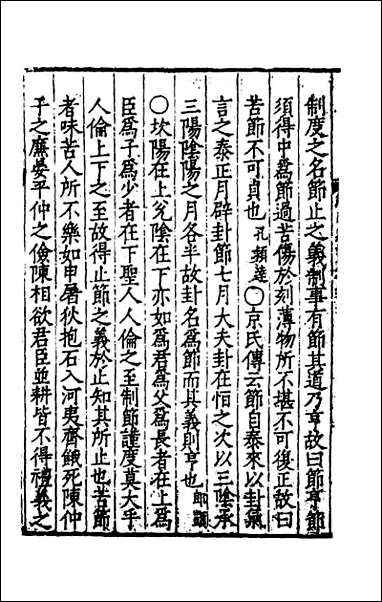 制度之名節止之義制事有節其道乃亨故曰節亨節
須得中爲節過苦傷於刻薄物所不堪不可復正故曰
苦節不可貞也孔穎達○京氏傳云節自泰來以卦氣
言之泰正月辟卦節七月大夫卦在恒之次以三陰承
三陽陰陽之月各半故卦名爲節而其義則亨也郎顗
○坎陽在上兊陰在下亦如爲君爲父爲長者在上爲
臣爲子爲少者在下聖人人倫之至制節謹度莫大乎
人倫上下之至故得止節之義於止知其所止也苦節
者味苦人所不樂如申屠狄抱石入河夷齊餓死陳仲
子之廉晏平仲之儉陳相欲君臣並耕皆不得禮義之